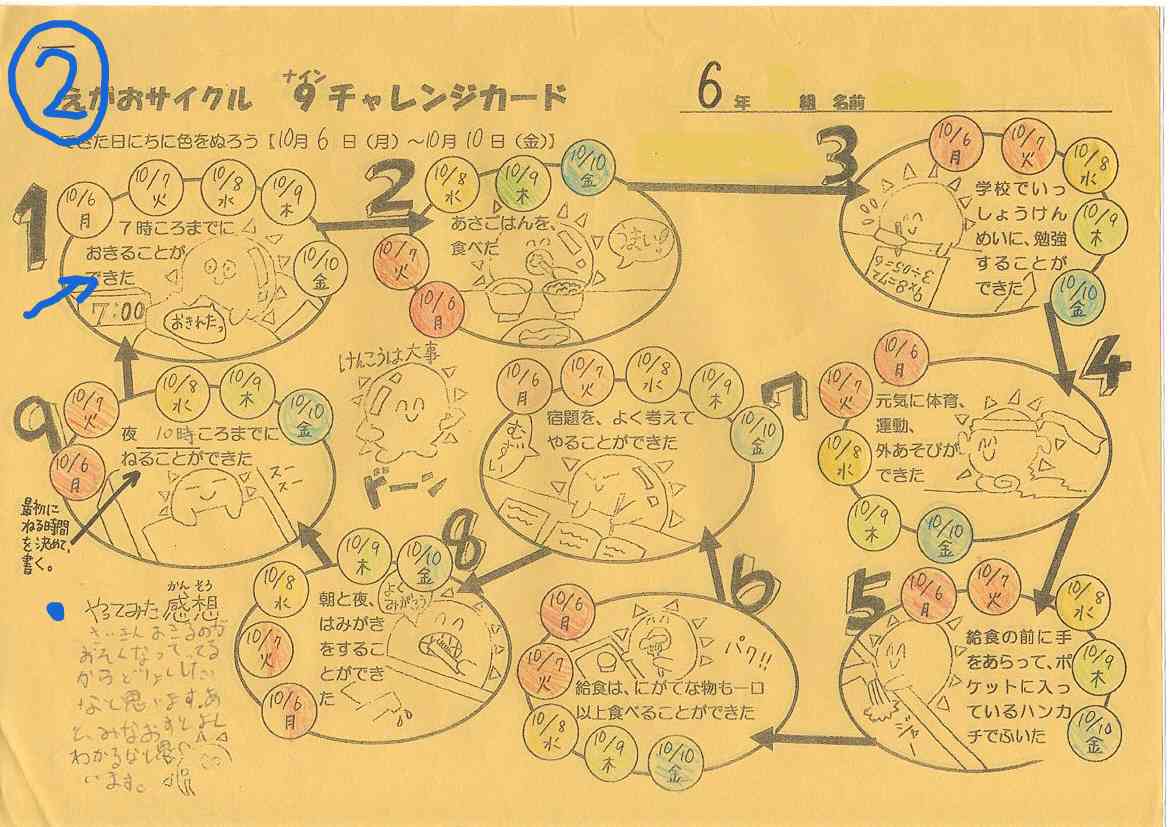 ②
えがおサイクル 9 チャレンジカード
ナイン
6年 組 名前
できた日にちに色をぬろう【10月6日(月)～10月10日(金)】
1
10/6 月
10/7 火
10/8 水
10/9 木
10/10 金
7時ころまでに
おきることが
できた
7:00
おきれたっ
2
10/6 月
10/7 火
10/8 水
10/9 木
10/10 金
あさごはんを、
食べた
うまい!
3
10/6 月
10/7 火
10/8 水
10/9 木
10/10 金
学校でいっ
しょうけん
めいに、勉強
することが
できた
9×8=72
4
10/6 月
10/7 火
10/8 水
10/9 木
10/10 金
元気に体育、
運動、
外あそびが
できた
5
10/6 月
10/7 火
10/8 水
10/9 木
10/10 金
給食の前に手
をあらって、ポ
ケットに入っ
ているハンカ
チでふいた
ジャー
6
10/6 月
10/7 火
10/8 水
10/9 木
10/10 金
パク!!
給食は、にがてな物も一口
以上食べることができた
7
10/6 月
10/7 火
10/8 水
10/9 木
10/10 金
宿題を、よく考えて
やることができた
むずい
8
10/6 月
10/7 火
10/8 水
10/9 木
10/10 金
朝と夜、
はみがき
をするこ
とができ
た
よく
みがこう
9
10/6 月
10/7 火
10/8 水
10/9 木
10/10 金
夜 10時ころまでに
ねることができた
スー
スー
最初に
ねる時間
を決めて、
書く。
けんこうは大事
ドーン
かんそう
やってみた感想
さいきんおきるのが
おそくなってってる
からどりょくしたい
なと思います。あ
と、みなおすとよく
わかるなと思
います。